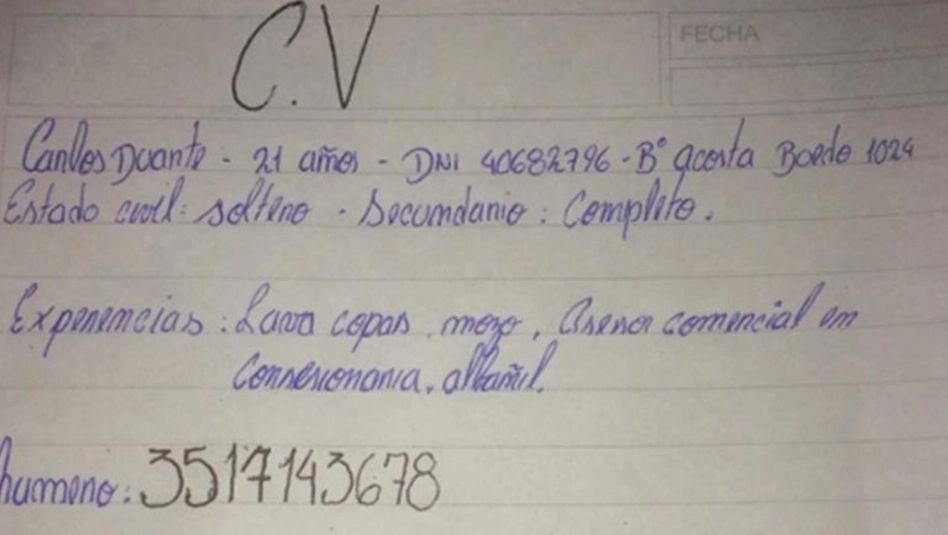 C.V
FECHA
Carlos Duarte - 21 años - DNI 40682796 - B° Acosta Boedo 1024
Estado civil: soltero - Secundario: Completo.
Experiencias: Lava copas, mozo, Asesor comercial en
Consesionaria, albañil.
numero: 3517143678